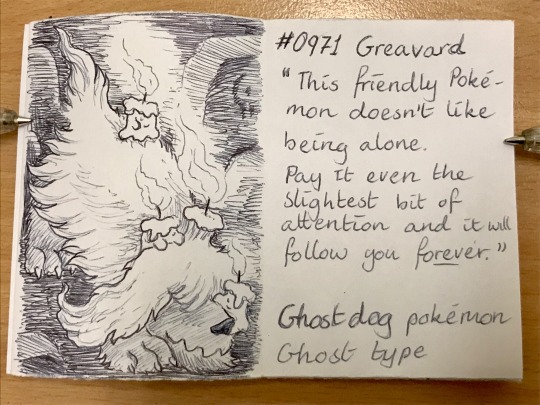 #0971 Greavard
"This friendly Poké-
mon doesn't like
being alone.
Pay it even the
slightest bit of
attention and it will
follow you forever."
Ghost dog pokémon
Ghost type